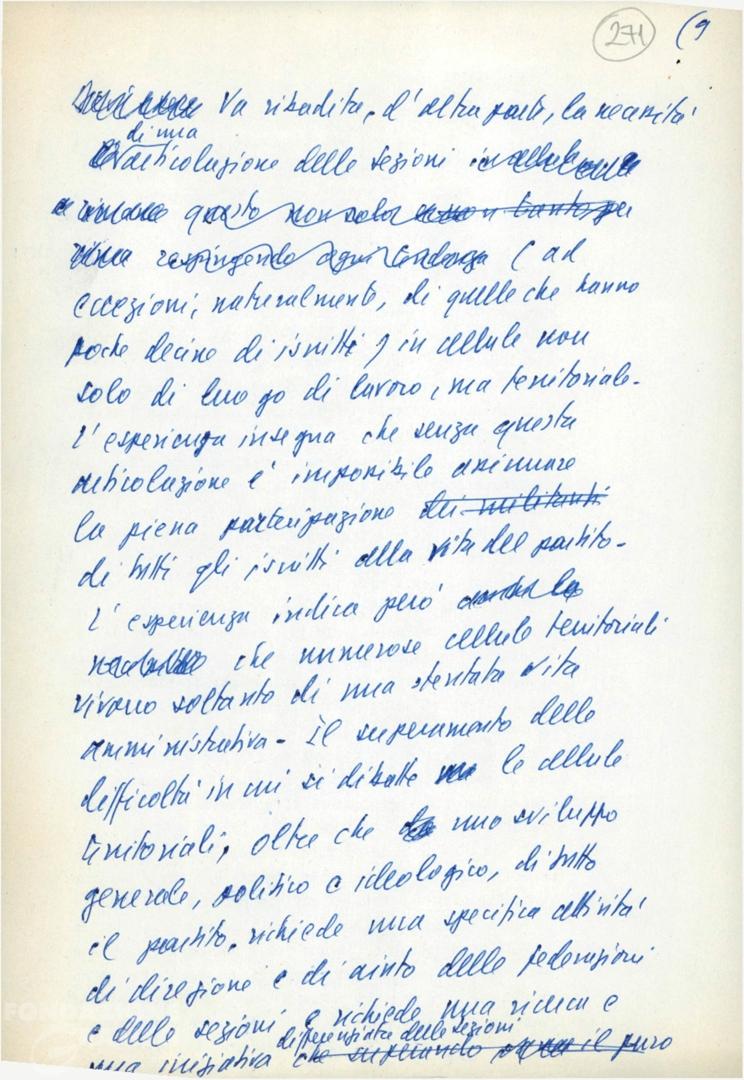 271 (9
Va ribadita, d'altra parte, la necessità
di una
articolazione delle sezioni in cellule
questo non solo non tanto per
respingendo ogni tendenza (ad
eccezioni, naturalmente, di quelle che hanno
poche decine di iscritti) in cellule non
solo di luogo di lavoro, ma territoriale.
L'esperienza insegna che senza questa
articolazione è impossibile assicurare
la piena partecipazione dei militanti
di tutti gli iscritti alla vita del partito.
L'esperienza indica però
che numerose cellule territoriali
vivono soltanto di una stentata vita
amministrativa. Il superamento delle
difficoltà in cui si dibatte le cellule
territoriali, oltre che uno sviluppo
generale, politico e ideologico, di tutto
il partito, richiede una specifica attività
di direzione e di aiuto delle federazioni
e delle sezioni e richiede una ricerca e
differenziata delle sezioni
una iniziativa che superando il puro
FOND